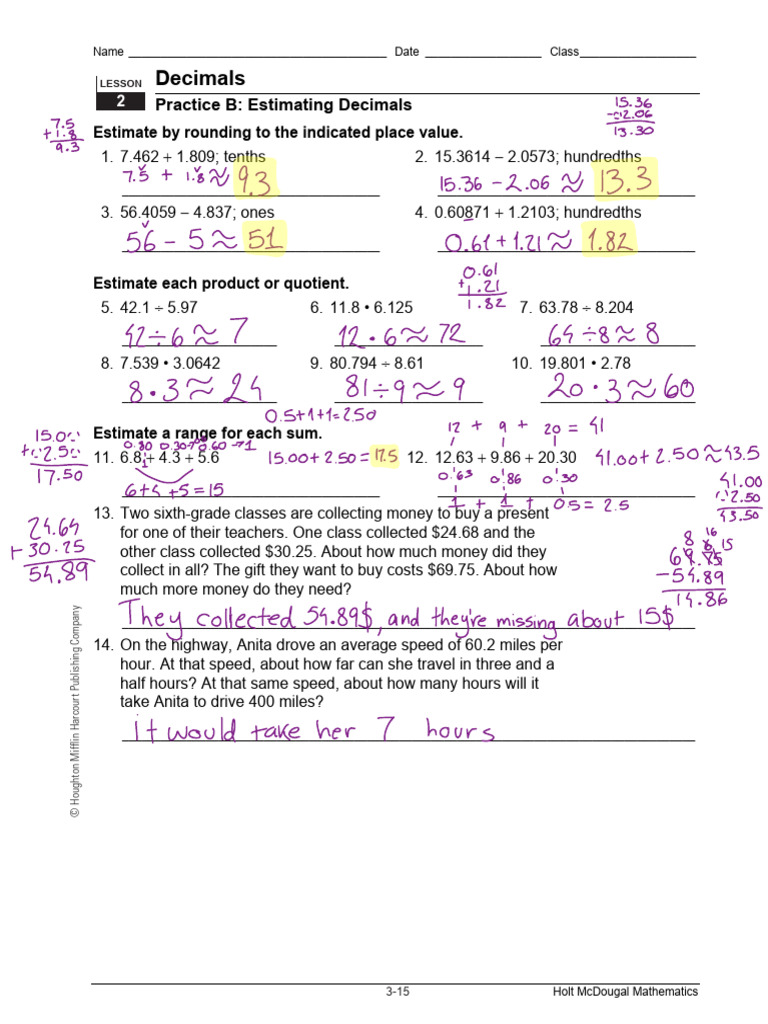 Name ____ Date ____ Class____
LESSON 2
Decimals
Practice B: Estimating Decimals
15.36
−2.06
13.30
7.5
+1.8
9.3
Estimate by rounding to the indicated place value.
1. 7.462 + 1.809; tenths
7.5 + 1.8 ≈ 9.3
2. 15.3614 – 2.0573; hundredths
15.36 − 2.06 ≈ 13.3
3. 56.4059 – 4.837; ones
56 − 5 ≈ 51
4. 0.60871 + 1.2103; hundredths
0.61 + 1.21 ≈ 1.82
0.61
+1.21
1.82
Estimate each product or quotient.
5. 42.1 ÷ 5.97
42 ÷ 6 ≈ 7
6. 11.8 • 6.125
12 • 6 ≈ 72
7. 63.78 ÷ 8.204
64 ÷ 8 ≈ 8
8. 7.539 • 3.0642
8 • 3 ≈ 24
9. 80.794 ÷ 8.61
81 ÷ 9 ≈ 9
10. 19.801 • 2.78
20 • 3 ≈ 60
0.5+1+1=2.50
Estimate a range for each sum.
15.00
+2.50
17.50
11. 6.8 + 4.3 + 5.6
15.00 + 2.50 = 17.5
6+4+5=15
12 + 9 + 20 = 41
12. 12.63 + 9.86 + 20.30
41.00 + 2.50 ≈ 43.5
0.63 0.86 0.30
1 + 1 + 0.5 = 2.5
41.00
2.50
43.50
13. Two sixth-grade classes are collecting money to buy a present
for one of their teachers. One class collected $24.68 and the
other class collected $30.25. About how much money did they
collect in all? The gift they want to buy costs $69.75. About how
much more money do they need?
24.64
+30.25
54.89
−54.89
14.86
They collected 54.89$, and they're missing about 15$
14. On the highway, Anita drove an average speed of 60.2 miles per
hour. At that speed, about how far can she travel in three and a
half hours? At that same speed, about how many hours will it
take Anita to drive 400 miles?
it would take her 7 hours
© Houghton Mifflin Harcourt Publishing Company
3-15
Holt McDougal Mathematics